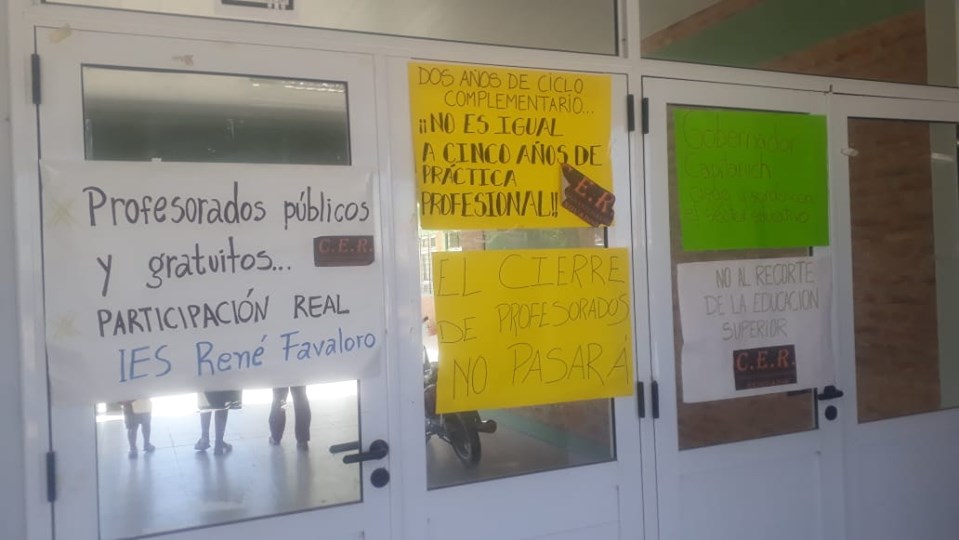 Profesorados públicos
y gratuitos...
C.E.R.
PARTICIPACIÓN REAL
IES René Favaloro
DOS AÑOS DE CICLO
COMPLEMENTARIO...
¡¡NO ES IGUAL
A CINCO AÑOS DE
PRÁCTICA
PROFESIONAL!!
C.E.R.
EL CIERRE
DE PROFESORADOS
NO PASARÁ
Gobernador
Capitanich
NO AL RECORTE
DE LA EDUCACIÓN
SUPERIOR
C.E.R.